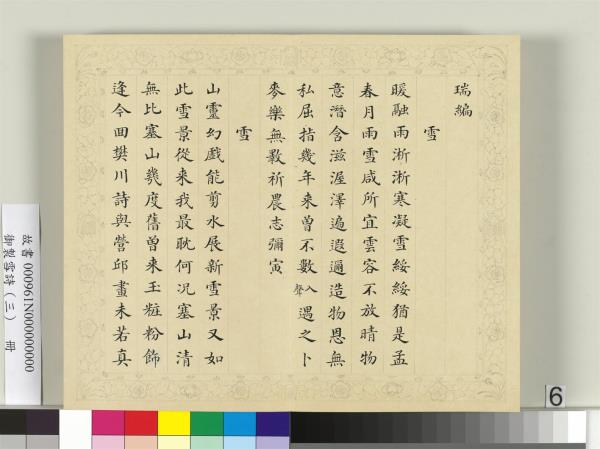 瑞編
雪
暖融雨淅淅寒凝雪綏綏猶是孟
春月雨雪咸所宜雲容不放晴物
意潛含滋渥澤遍遐邇造物恩無
私屈指幾年來曾不數入聲遇之卜
麥樂無斁祈農志彌寅
雪
山靈幻戲能剪水展新雪景又如
此雪景從來我最耽何況塞山清
無比塞山幾度舊曾來玉粧粉飾
逢今回樊川詩與營邱畫未若真
故書000961N000000000
御製雪詩（三） 冊
6